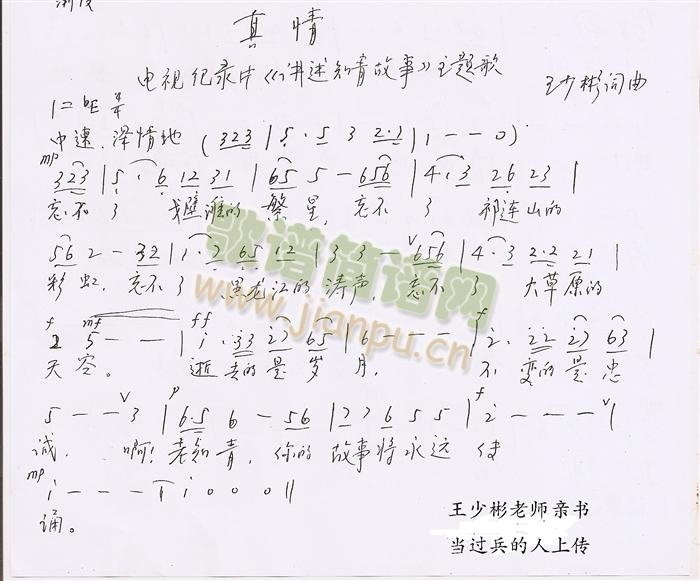 真情
电视纪录片《讲述知青故事》主题歌
王少彬词曲
1=bE 4/4
中速 深情地 (323 | 5·5 3 2·2 | 1 - - 0)
mp
323 | 5· 6 12 31 | 65 5 - 656 | 4·3 26 23 |
忘不了 戈壁滩的繁星, 忘不了 祁连山的
562 - 32 | 1·2 65 12 | 33 - V 656 | 4·3 2·2 21 |
彩虹, 忘不了 黑龙江的涛声, 忘不了 大草原的
f mf ff f
2 5 - - | i· 33 27 65 | 6 - - - | 2· 22 27 63 |
天空。 逝去的是岁月, 不变的是忠
p f
5 - - V 3 | 6·5 6 - 56 | 77 6 5 5 | 2 - - - V |
诚, 啊! 老知青, 你的故事将永远传
mp
i - - - | i 0 0 0 ||
诵。
歌谱简谱网
www.jianpu.cn
王少彬老师亲书
当过兵的人上传